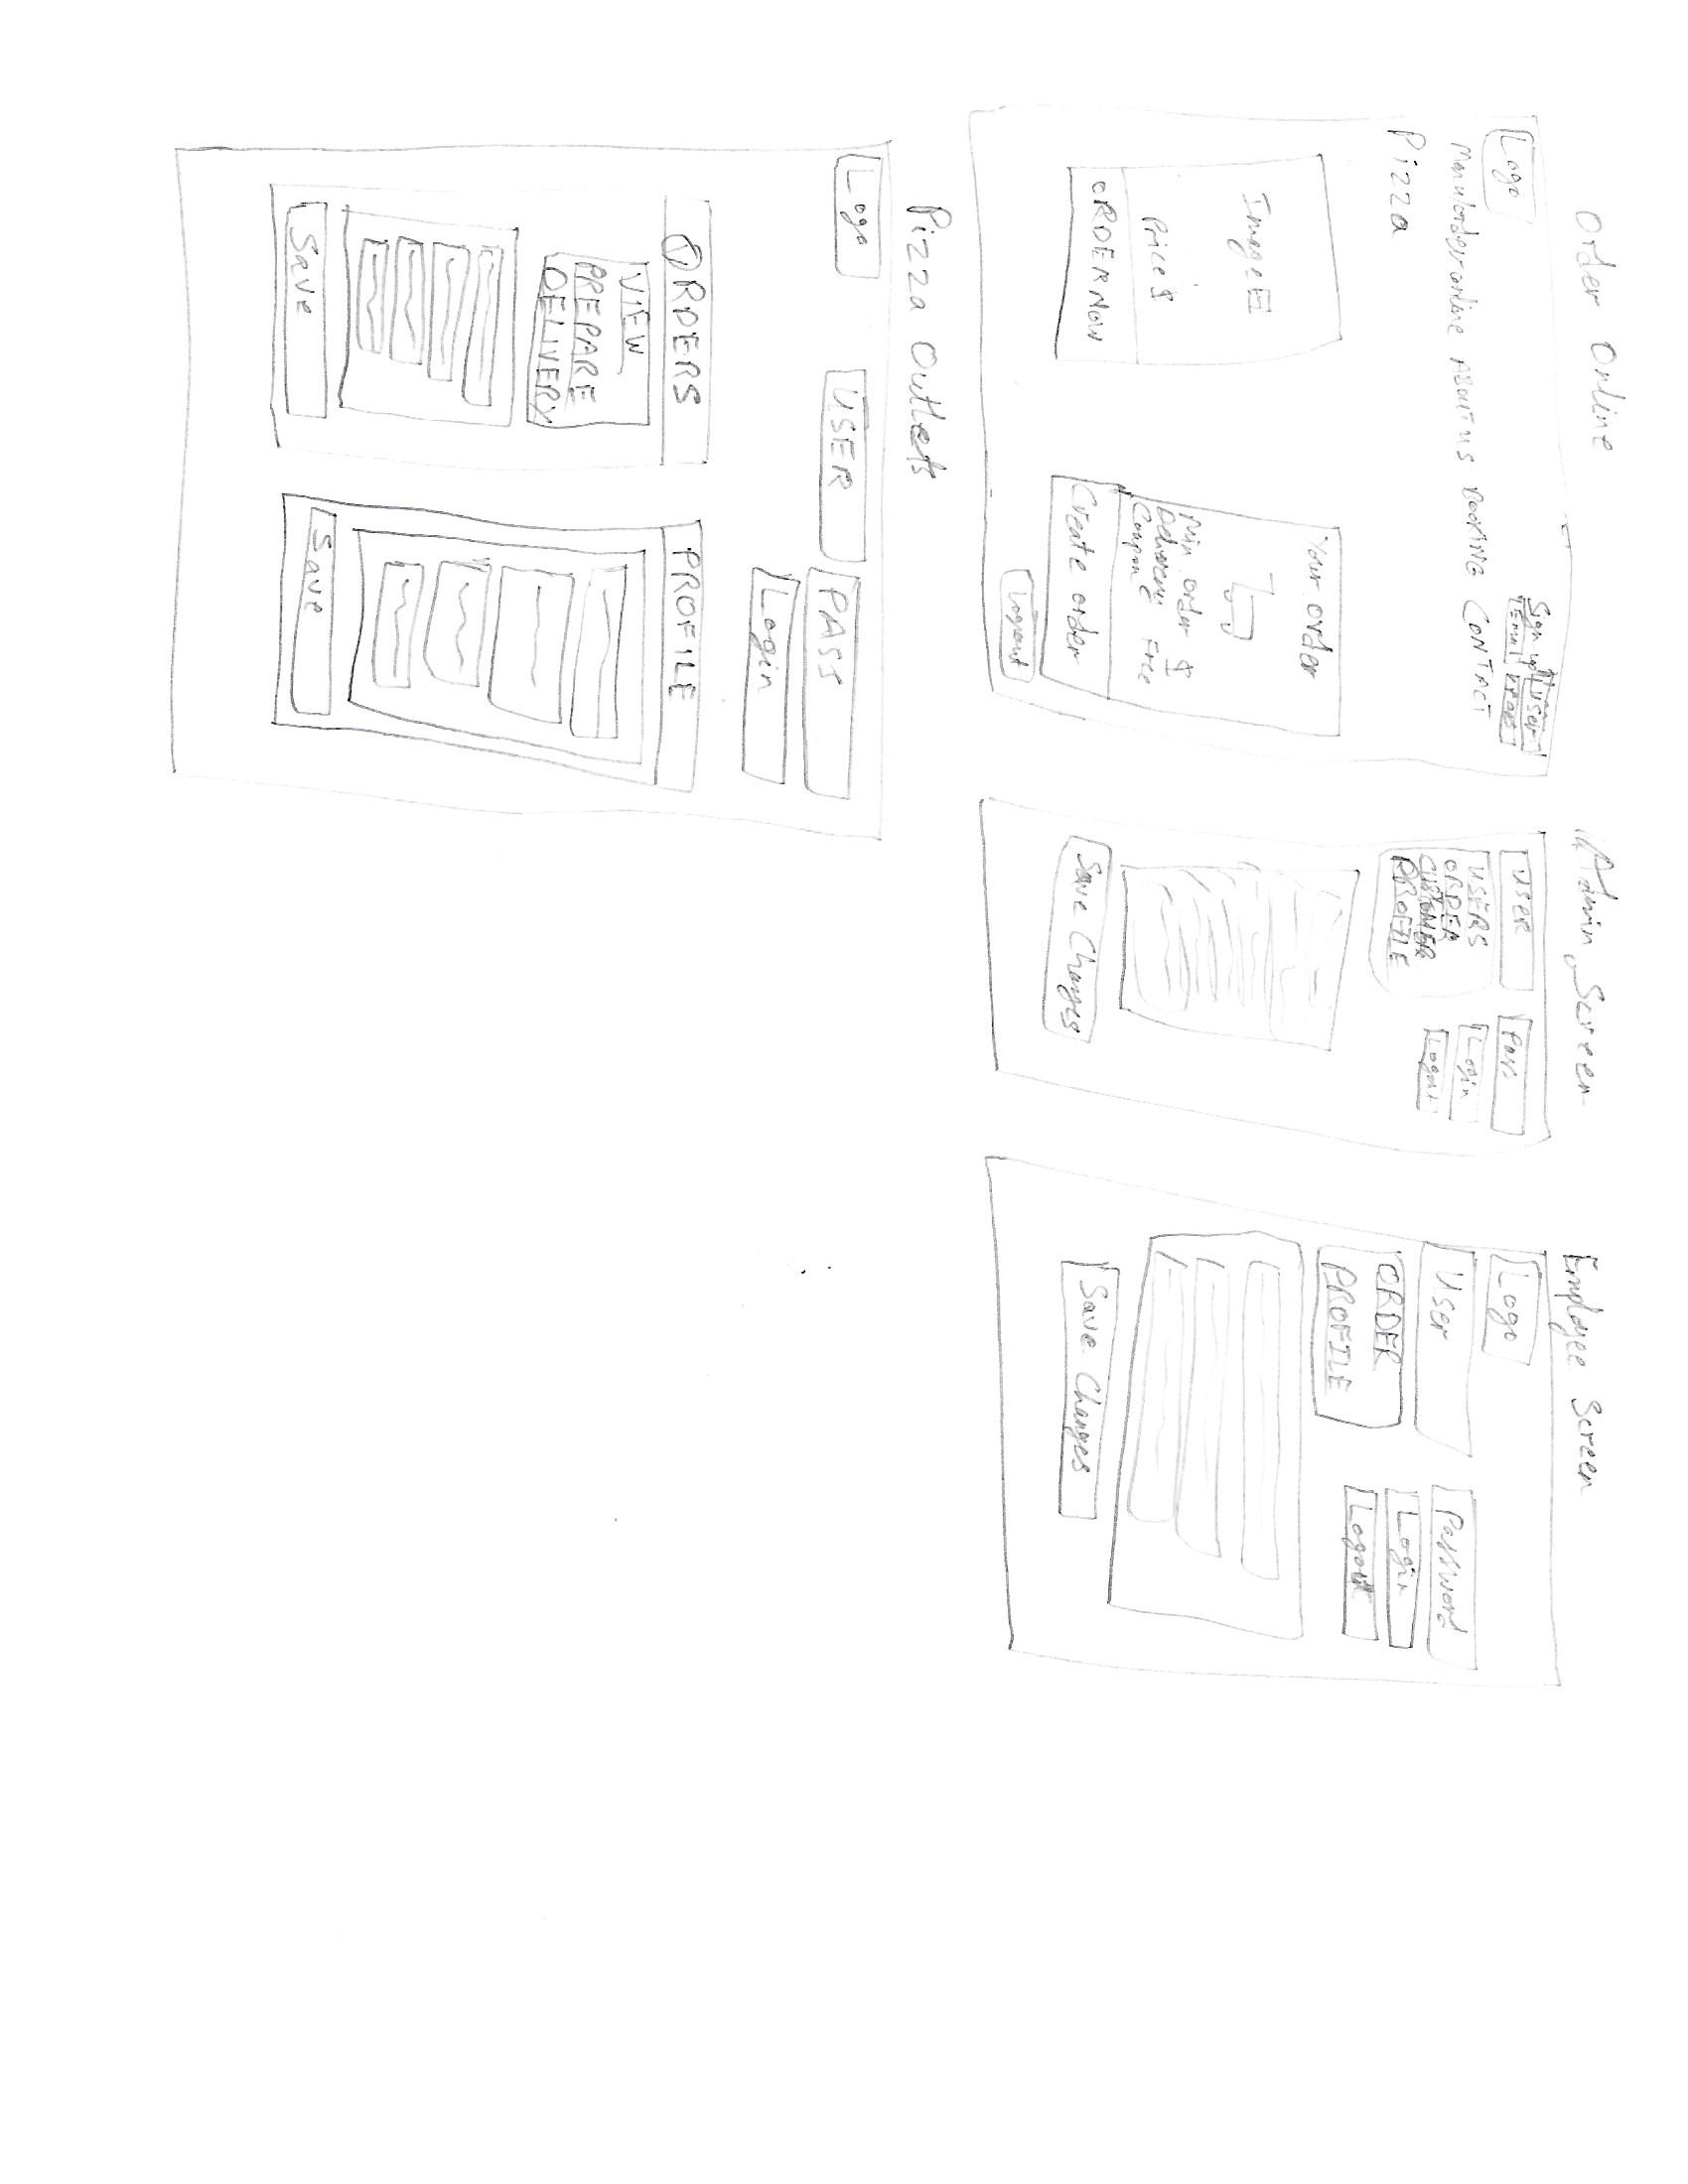 Order Online
Logo
Sign up User
Email Pass
Menu/order online ABOUT US BOOKING CONTACT
Pizza
Image
Price $
ORDER NOW
Your order
Min order $
Delivery Free
Coupon
Create order
Logout
Admin Screen
USER Pass
USERS
ORDER
CUSTOMER
PROFILE
Login
Logout
Save Changes
Employee Screen
Logo
User Password
ORDER
PROFILE
Login
Logout
Save Changes
Pizza Outlets
Logo USER PASS
Login
ORDERS
VIEW
PREPARE
DELIVERY
Save
PROFILE
Save